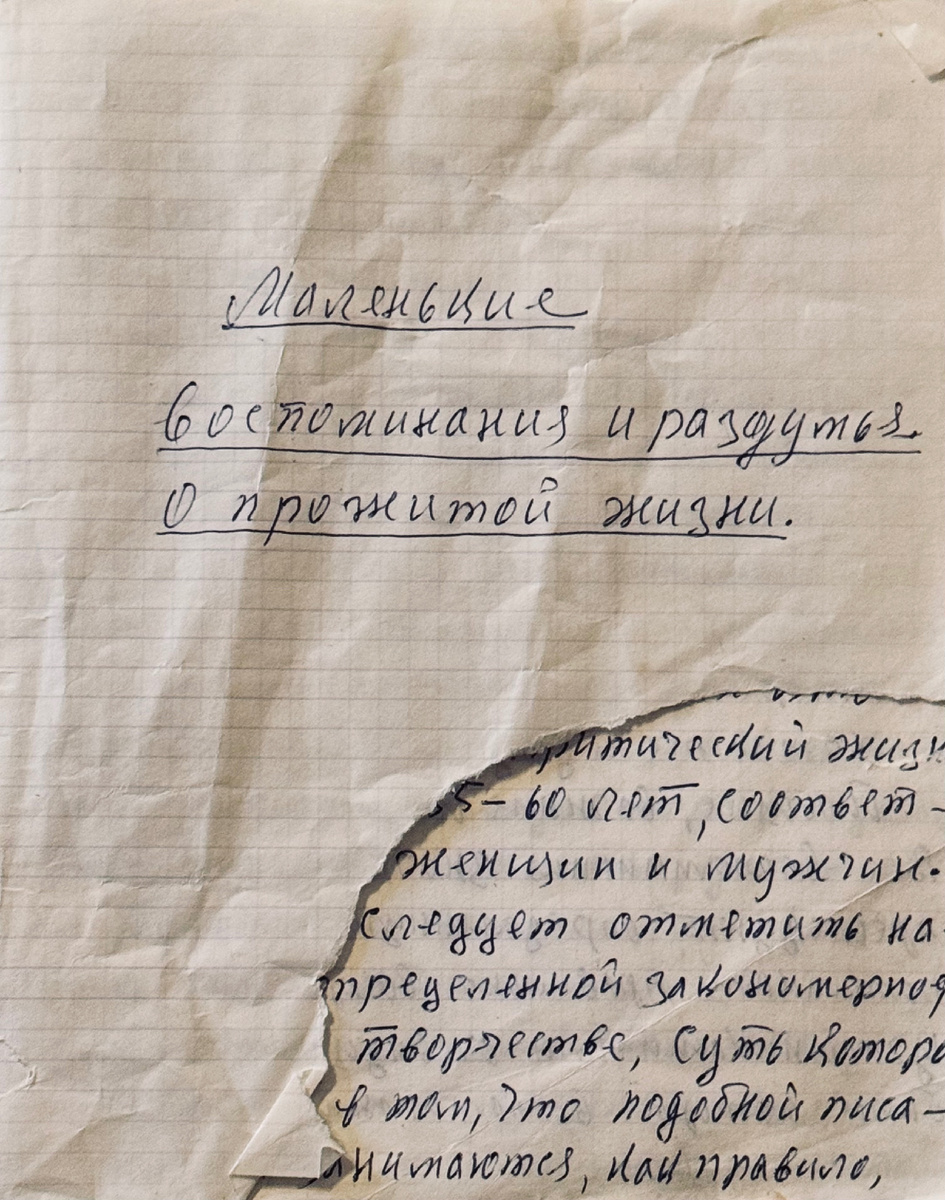 Маленькие
воспоминания и раздумья.
о прожитой жизни.
ритический жизн
55-60 лет, соответ-
женщин и мужчин.
следует отметить на-
пределенной закономернос
творчестве, суть которо
в том, что подобной писа-
нимаются, как правило,